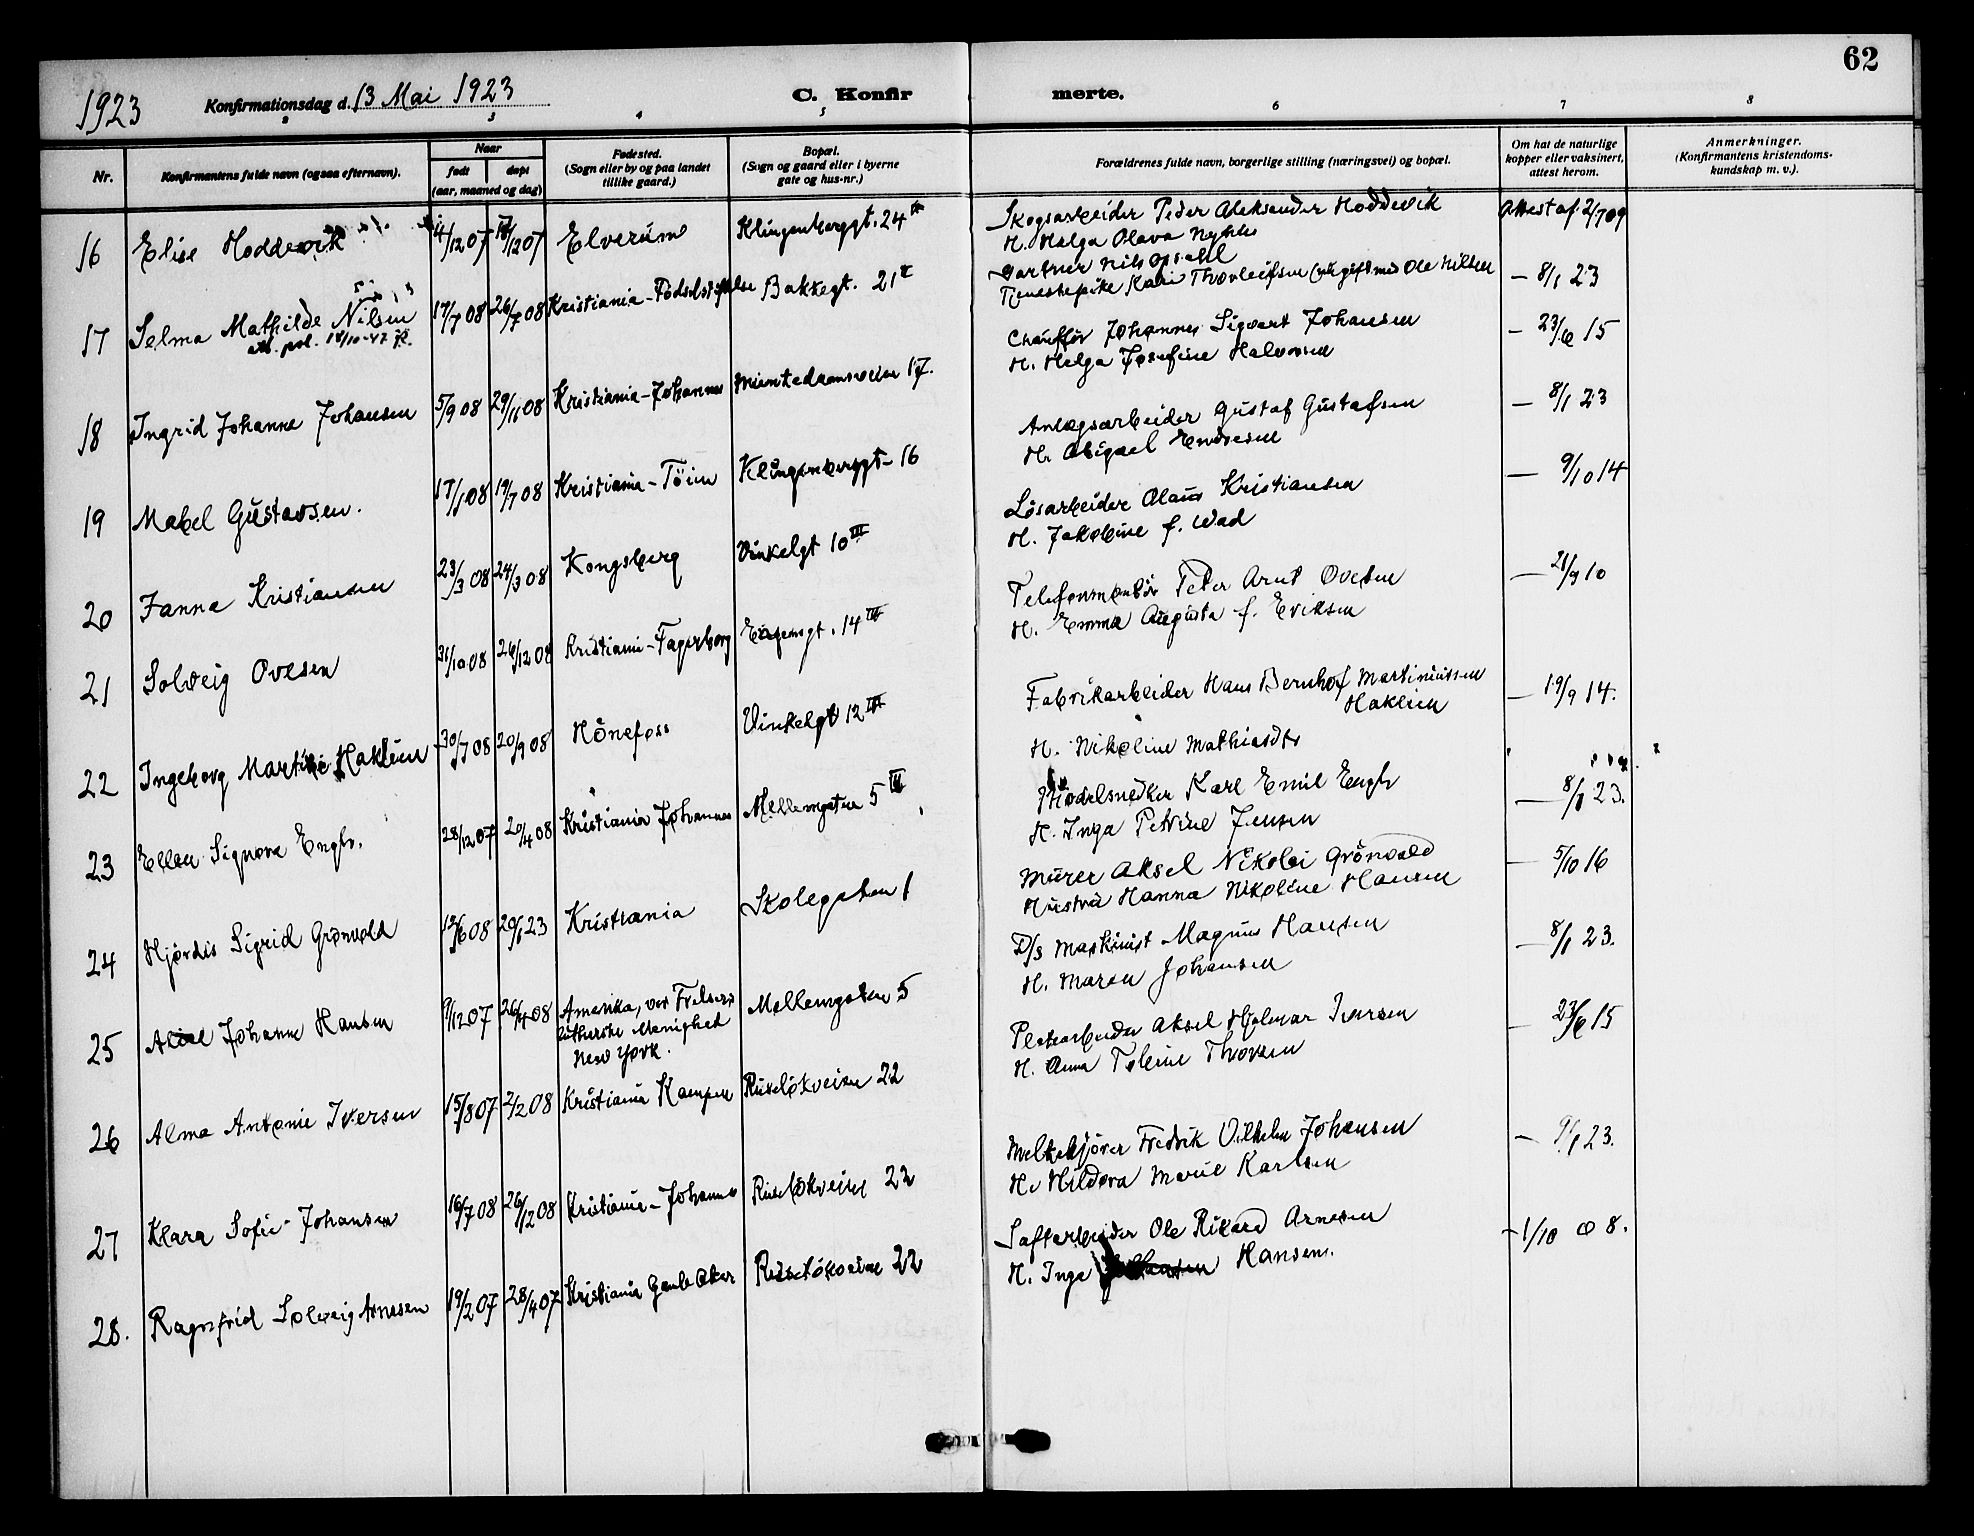 62
1923 Konfirmationsdag d. 13 Mai 1923 C. Konfirmerte.
2 3 4 5 6 7 8
Nr.
Konfirmantens fulde navn (ogsaa efternavn).
Naar
født døpt
(aar, maaned og dag)
Fødested.
(Sogn eller by og paa landet
tillike gaard.)
Bopæl.
(Sogn og gaard eller i byerne
gate og hus-nr.)
Forældrenes fulde navn, borgerlige stilling (næringsvei) og bopæl.
Om hat de naturlige
kopper eller vaksinert,
attest herom.
Anmerkninger.
(Konfirmantens kristendoms-
kundskap m. v.).
16 Elise Hoddevik 14/12 07 /12 07 Elverum Klingenberggt. 24 Skogsarbeider Peder Aleksander Hoddevik Attest af 2/7 09
H. Helga Olava
17 Selma Mathilde Nilsen 17/7 08 26/7 08 Kristiania-Fødselsstiftelse Bakkegt. 21 Gartner Nils Opsahl
Tjenestepike Kari Thorleifsen gift med Ole Nilsen — 8/1 23
att. pol. 18/10-47
18 Ingrid Johanne Johansen 5/9 08 29/11 08 Kristiania-Johannes Munkedamsveien 17. Chauffør Johannes Sigvart Johansen — 23/6 15
H. Helga Josefine Halvorsen
19 Mabel Gustavsen. 17/1 08 19/7 08 Kristiania-Töien Klingenberggt-16 Anlægsarbeider Gustaf Gustafsen — 8/1 23
H. Abigael Endresen
20 Janna Kristiansen 23/3 08 24/3 08 Kongsberg Vinkelgt 10 III Løsarbeider Olaus Kristiansen — 9/10 14
H. Jakobine f. Wad
21 Solveig Ovesen 31/10 08 26/12 08 Kristiania-Fagerborg 14 III Telefonmontør Peter Arnt Ovesen — 21/9 10
H. Emma Augusta f. Eriksen
22 Ingeborg Martine Haklien 30/7 08 20/9 08 Hönefoss Vinkelgt 12 III Fabrikarbeider Hans Bernhof Martiniussen
Haklien — 19/9 14.
H. Nikoline Mathiasdtr
23 Ellen Signora Engh. 28/12 07 20/4 08 Kristiania Johannes Mellemgaten 5 III Modelsnedker Karl Emil Engh — 8/1 23.
H. Inga Petrine Jensen
24 Hjørdis Sigrid Grønvold 12/6 08 20/1 23 Kristiania Skolegaten 1 Murer Aksel Nikolai Grönvold — 5/10 16
Hustru Hanna Nikoline Hansen
25 Johanne Hansen 9/12 07 26/4 08 Amerika, Frelsers
lutherske Menighed
New York.
Mellemgaten 5 D/S Maskinist Magnus Hansen — 8/1 23.
H. Maren Johansen
26 Alma Antonie Iversen 15/8 07 2/2 08 Kristiania Kampen Ruselökveien 22 Aksel Hjalmar Iversen — 23/6 15
H. Anna Thorsen
27 Klara Sofie Johansen 16/7 08 26/12 08 Kristiania-Johannes Ruselökveien 22 Melkekjører Fredrik Vilhelm Johansen — 9/1 23.
H. Hildora Marie Karlsen
28. Ragnfrid Solveig Arnesen 19/2 07 28/4 07 Kristiania Gamle Aker Ruselökveien 22 Ole Rikard Arnesen — 1/10 08.
H. Inga Hansen.